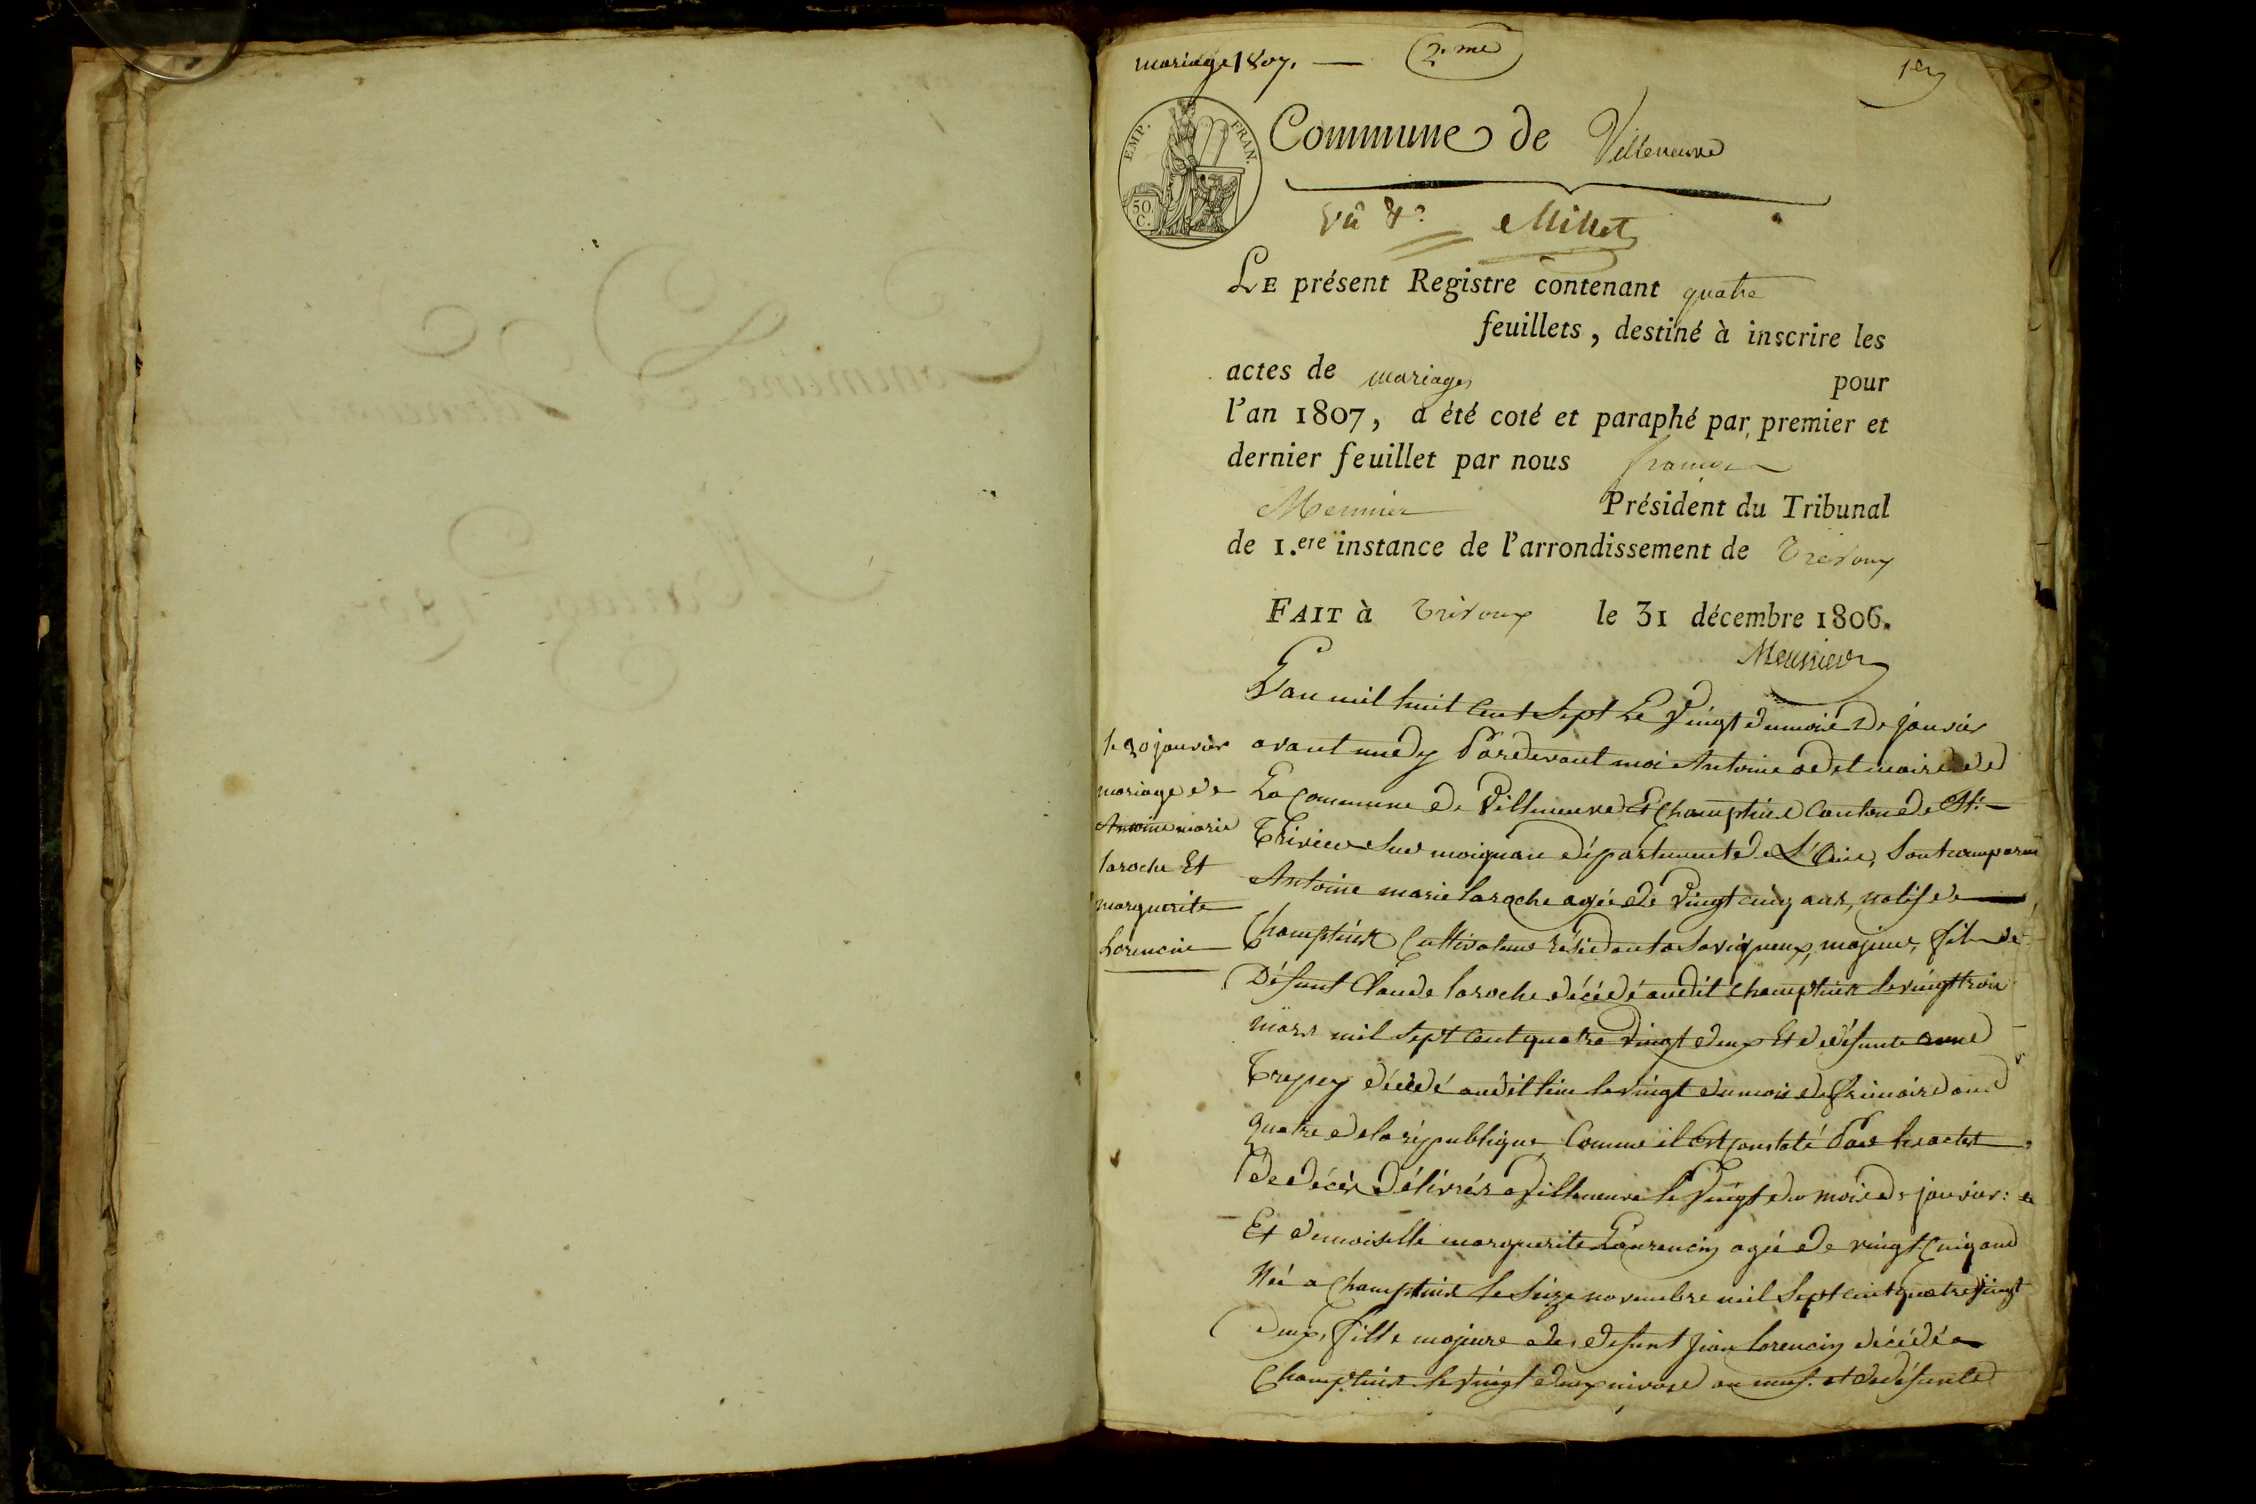 mariage 1807. — 2.me
1er
EMP. FRAN.
50 C.
Commune de Villeneuve
Vû Millet
LE présent Registre contenant quatre
feuillets, destiné à inscrire les
actes de mariages pour
l'an 1807, a été coté et paraphé par premier et
dernier feuillet par nous françois
Meunier Président du Tribunal
de 1.ere instance de l'arrondissement de Trévoux
FAIT à Trévoux le 31 décembre 1806.
Meunier
L'an mil huit cent sept Le Vingt du mois de janvier
avant midy Pardevant moi Antoine maire de
La Commune de Villeneuve et Champtin Canton de St.
Trivier sur moignan département de L'Ain, sont comparus
Antoine marie laroche agée de Vingt cinq ans, natif de
Champtin Cultivateur résidant a Savigneux, majeur, fils de
Défunt Claude laroche décédé audit Champtin le vingt trois
mars mil sept cent quatre vingt deux Et de défunte anne
décédé audit lieu le vingt du mois de frimaire an
quatre de la république Comme il Est constaté Par les actes
De décès Délivrés a Villeneuve le Vingt du mois de janvier:
Et demoiselle marguerite Laurencin agée de vingt Cinq ans
Née a Champtin le seize novembre mil sept cent quatre vingt
deux, fille majeure de défunt jean lorencin décédé a
Champtin le vingt deux nivose an neuf et de défunte
le 20 janvier
mariage de
Antoine marie
laroche Et
marguerite
Lorencin